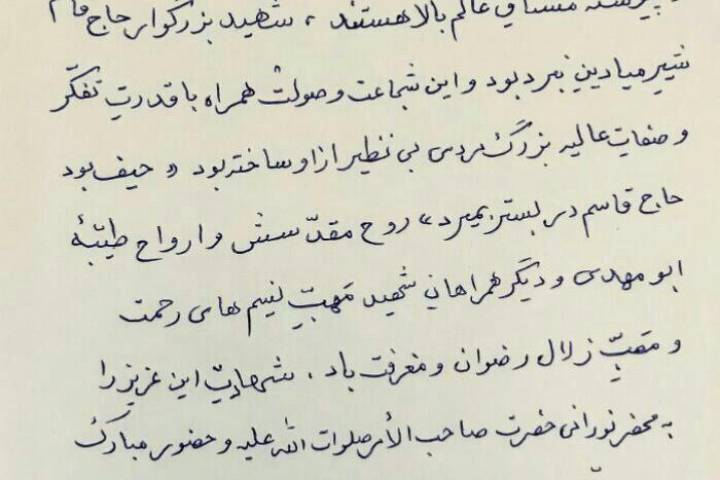 پیوسته مشتاق عالم بالا هستند ، شهید بزرگوار حاج قاسم
شیر میادین نبرد بود و این شجاعت و صولت همراه با قدرتِ تفکّر
و صفات عالیه بزرگ مردی بی نظیر از او ساخته بود « حیف بود
حاج قاسم در بستر بمیرد » روح مقدّسش و ارواح طیّبهٔ
ابو مهدی و دیگر همراهانِ شهید مَهبّ نسیم های رحمت
و مَصَبّ زلال رضوان و مغفرت باد . شهادتِ این عزیز را
به محضر نورانی حضرت صاحب الأمر صلوات الله علیه و حضور مبارک